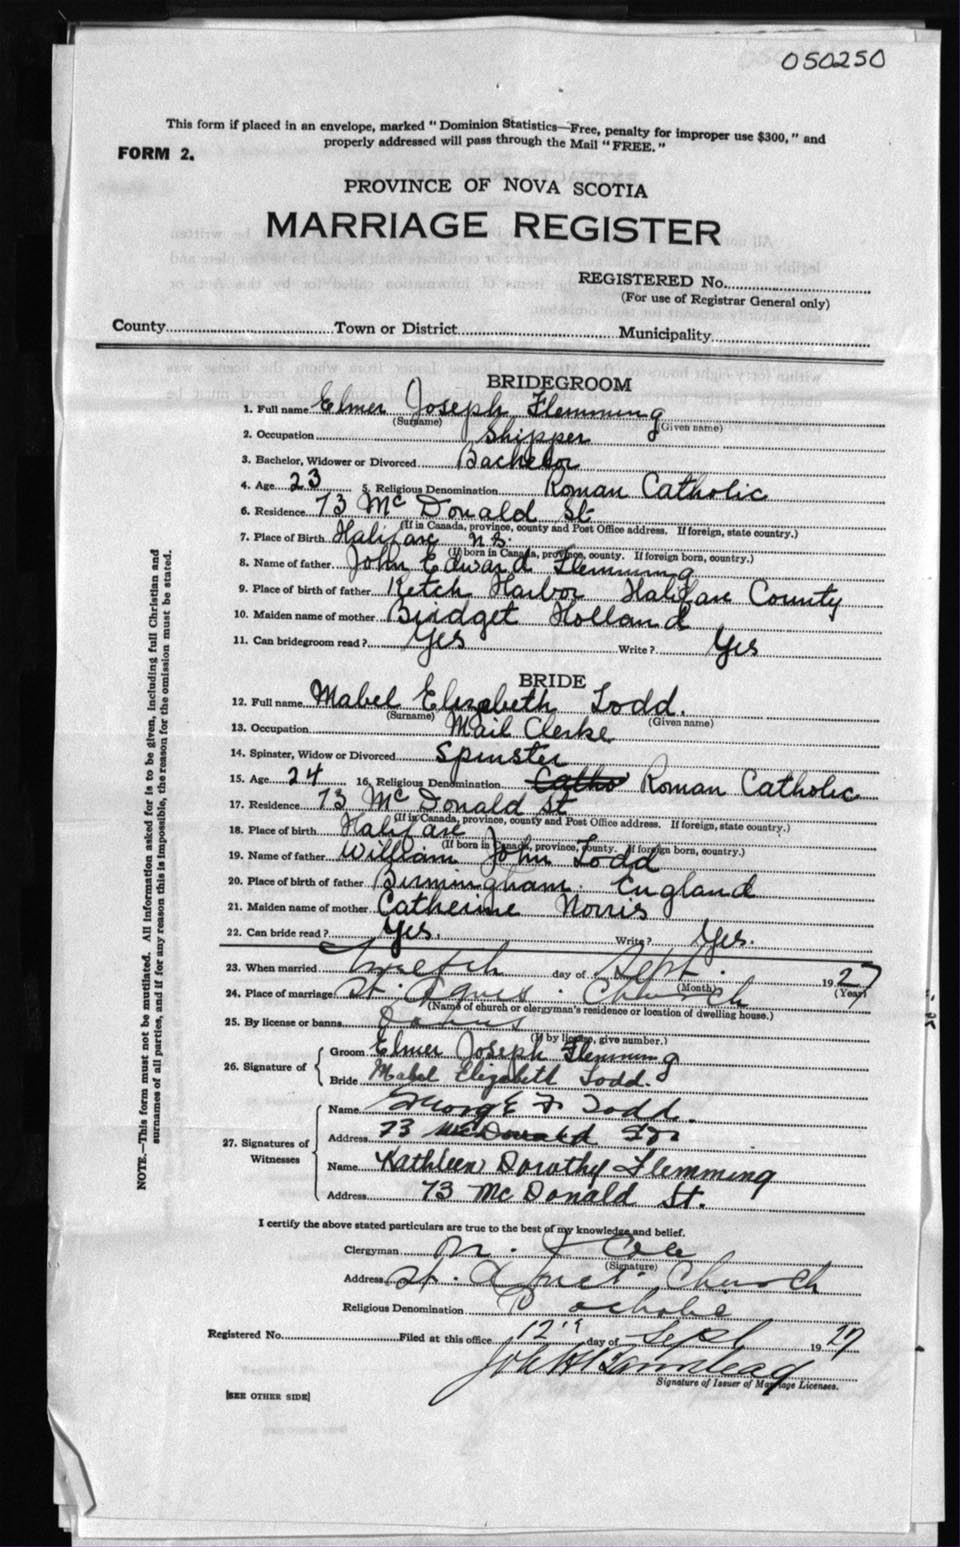 050250
This form if placed in an envelope, marked "Dominion Statistics—Free, penalty for improper use $300," and
properly addressed will pass through the Mail "FREE."
FORM 2.
PROVINCE OF NOVA SCOTIA
MARRIAGE REGISTER
REGISTERED No.
(For use of Registrar General only)
County Town or District Municipality
BRIDEGROOM
1. Full name Elmer Joseph Flemming
(Surname) (Given name)
2. Occupation Shipper
3. Bachelor, Widower or Divorced Bachelor
4. Age 23 5. Religious Denomination Roman Catholic
6. Residence 73 Mc Donald St
(If in Canada, province, county and Post Office address. If foreign, state country.)
7. Place of Birth Halifax N.S.
(If born in Canada, province, county. If foreign born, country.)
8. Name of father John Edward Flemming
9. Place of birth of father Ketch Harbor Halifax County
10. Maiden name of mother Bridget Holland
11. Can bridegroom read? Yes Write? Yes
BRIDE
12. Full name Mabel Elizabeth Todd.
(Surname) (Given name)
13. Occupation Mail Clerke
14. Spinster, Widow or Divorced Spinster
15. Age 24 16. Religious Denomination Catho Roman Catholic
17. Residence 73 Mc Donald St
(If in Canada, province, county and Post Office address. If foreign, state country.)
18. Place of birth Halifax
(If born in Canada, province, county. If foreign born, country.)
19. Name of father William John Todd
20. Place of birth of father Birmingham. England
21. Maiden name of mother Catherine Norris
22. Can bride read? Yes. Write? Yes.
23. When married day of Sept. 1927
(Month) (Year)
24. Place of marriage St. Agnes Church
(Name of church or clergyman's residence or location of dwelling house.)
25. By license or banns
(If by license, give number.)
26. Signature of Groom Elmer Joseph Flemming
Bride Mabel Elizabeth Todd.
27. Signatures of Witnesses Name George F Todd.
Address 73 McDonald
Name Kathleen Dorothy Flemming
Address 73 Mc Donald St.
I certify the above stated particulars are true to the best of my knowledge and belief.
Clergyman
(Signature)
Address St. Agnes Church
Religious Denomination
Registered No. Filed at this office 12th day of Sept 1927
Signature of Issuer of Marriage Licenses.
[SEE OTHER SIDE]
NOTE.—This form must not be mutilated. All information asked for is to be given, including full Christian and
surnames of all parties, and if for any reason this is impossible, the reason for the omission must be stated.